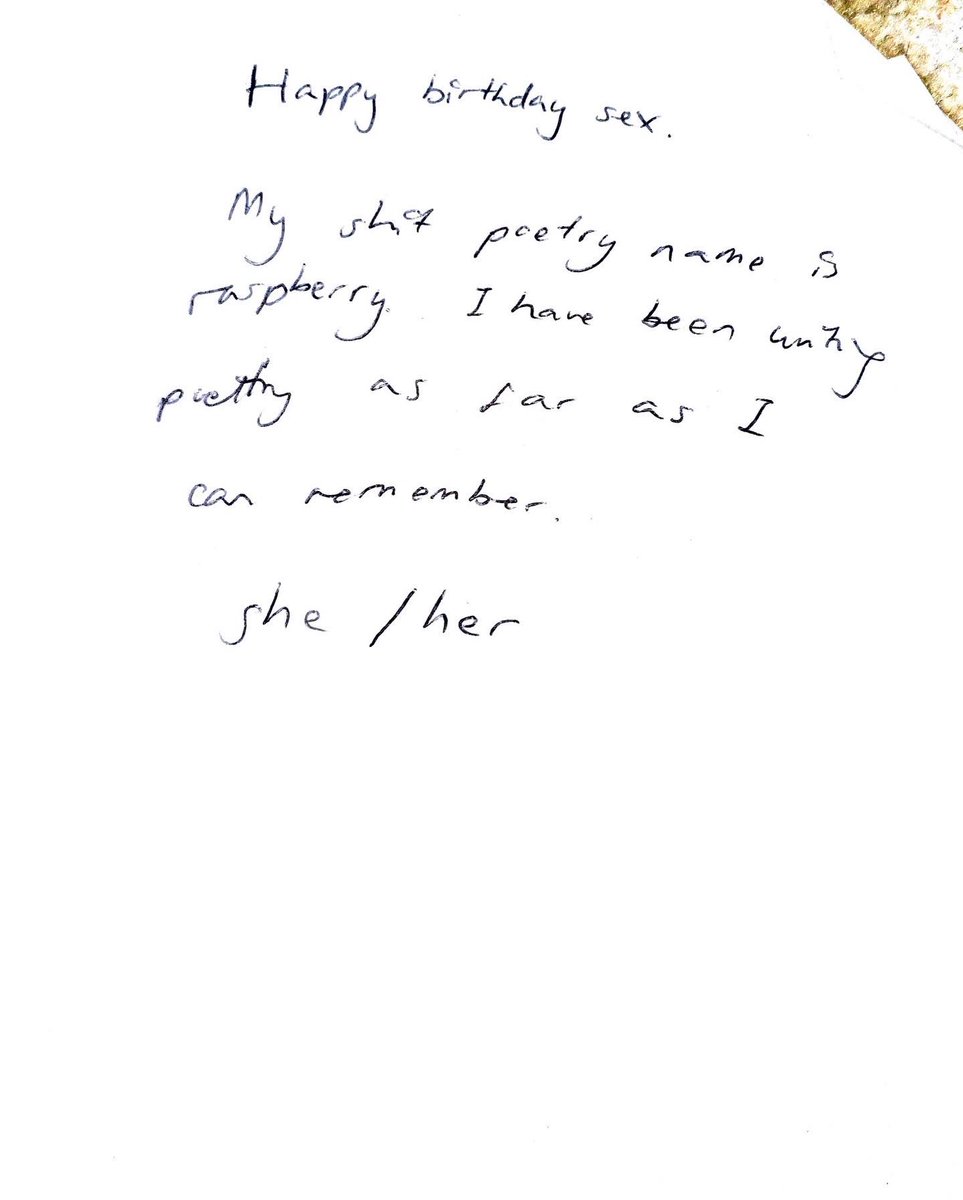 Happy birthday sex.
My shit poetry name is
raspberry. I have been writing
poetry as far as I
can remember.
she / her